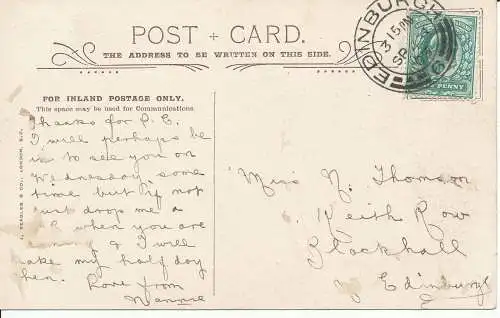 POST + CARD.
THE ADDRESS TO BE WRITTEN ON THIS SIDE.
EDINBURGH
3 15 PM
SP
PENNY
FOR INLAND POSTAGE ONLY.
This space may be used for Communications
Thanks for P.C.
I will perhaps be
in to see you on
Wednesday some
time but if not
just drop me a
when you are
& I will
take my half day
then. Love from
Nannie
Miss N. Thomson
6. Keith Row
Blackhall
Edinburgh
& CO., LONDON, E.C.